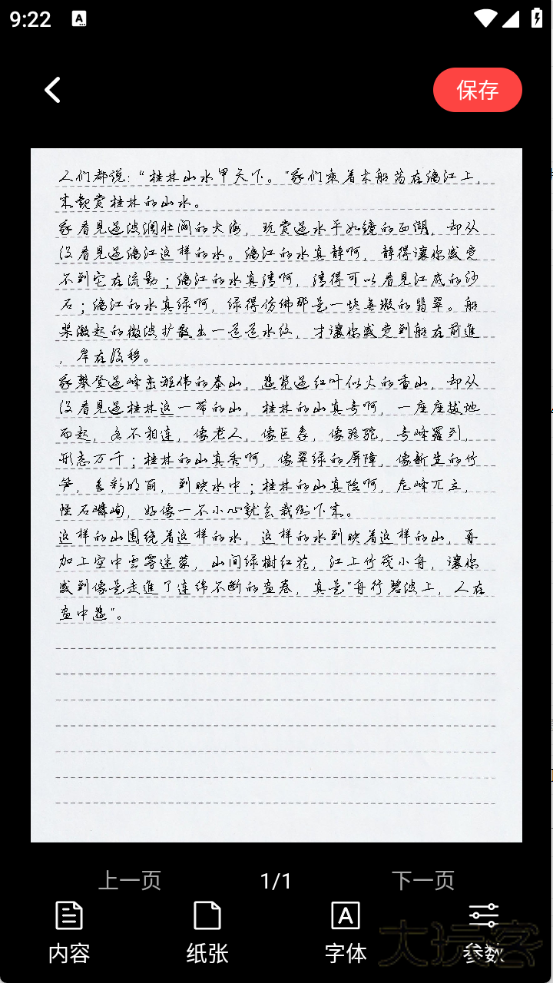 9:22
A
保存
人们都说："桂林山水甲天下。"我们乘着木船荡在漓江上，
来观赏桂林的山水。
我看见过波澜壮阔的大海，玩赏过水平如镜的西湖，却从
没看见过漓江这样的水。漓江的水真静啊，静得让你感觉
不到它在流动；漓江的水真清啊，清得可以看见江底的沙
石；漓江的水真绿啊，绿得仿佛那是一块无瑕的翡翠。船
桨激起的微波扩散出一道道水纹，才让你感觉到船在前进
，岸在后移。
我攀登过峰峦雄伟的泰山，游览过红叶似火的香山，却从
没看见过桂林这一带的山，桂林的山真奇啊，一座座拔地
而起，各不相连，像老人，像巨象，像骆驼，奇峰罗列，
形态万千；桂林的山真秀啊，像翠绿的屏障，像新生的竹
笋，色彩明丽，倒映水中；桂林的山真险啊，危峰兀立，
怪石嶙峋，好像一不小心就会栽倒下来。
这样的山围绕着这样的水，这样的水倒映着这样的山，再
加上空中云雾迷蒙，山间绿树红花，江上竹筏小舟，让你
感到像是走进了连绵不断的画卷，真是"舟行碧波上，人在
画中游"。
上一页
1/1
下一页
内容
纸张
A
字体
参数
大玩客